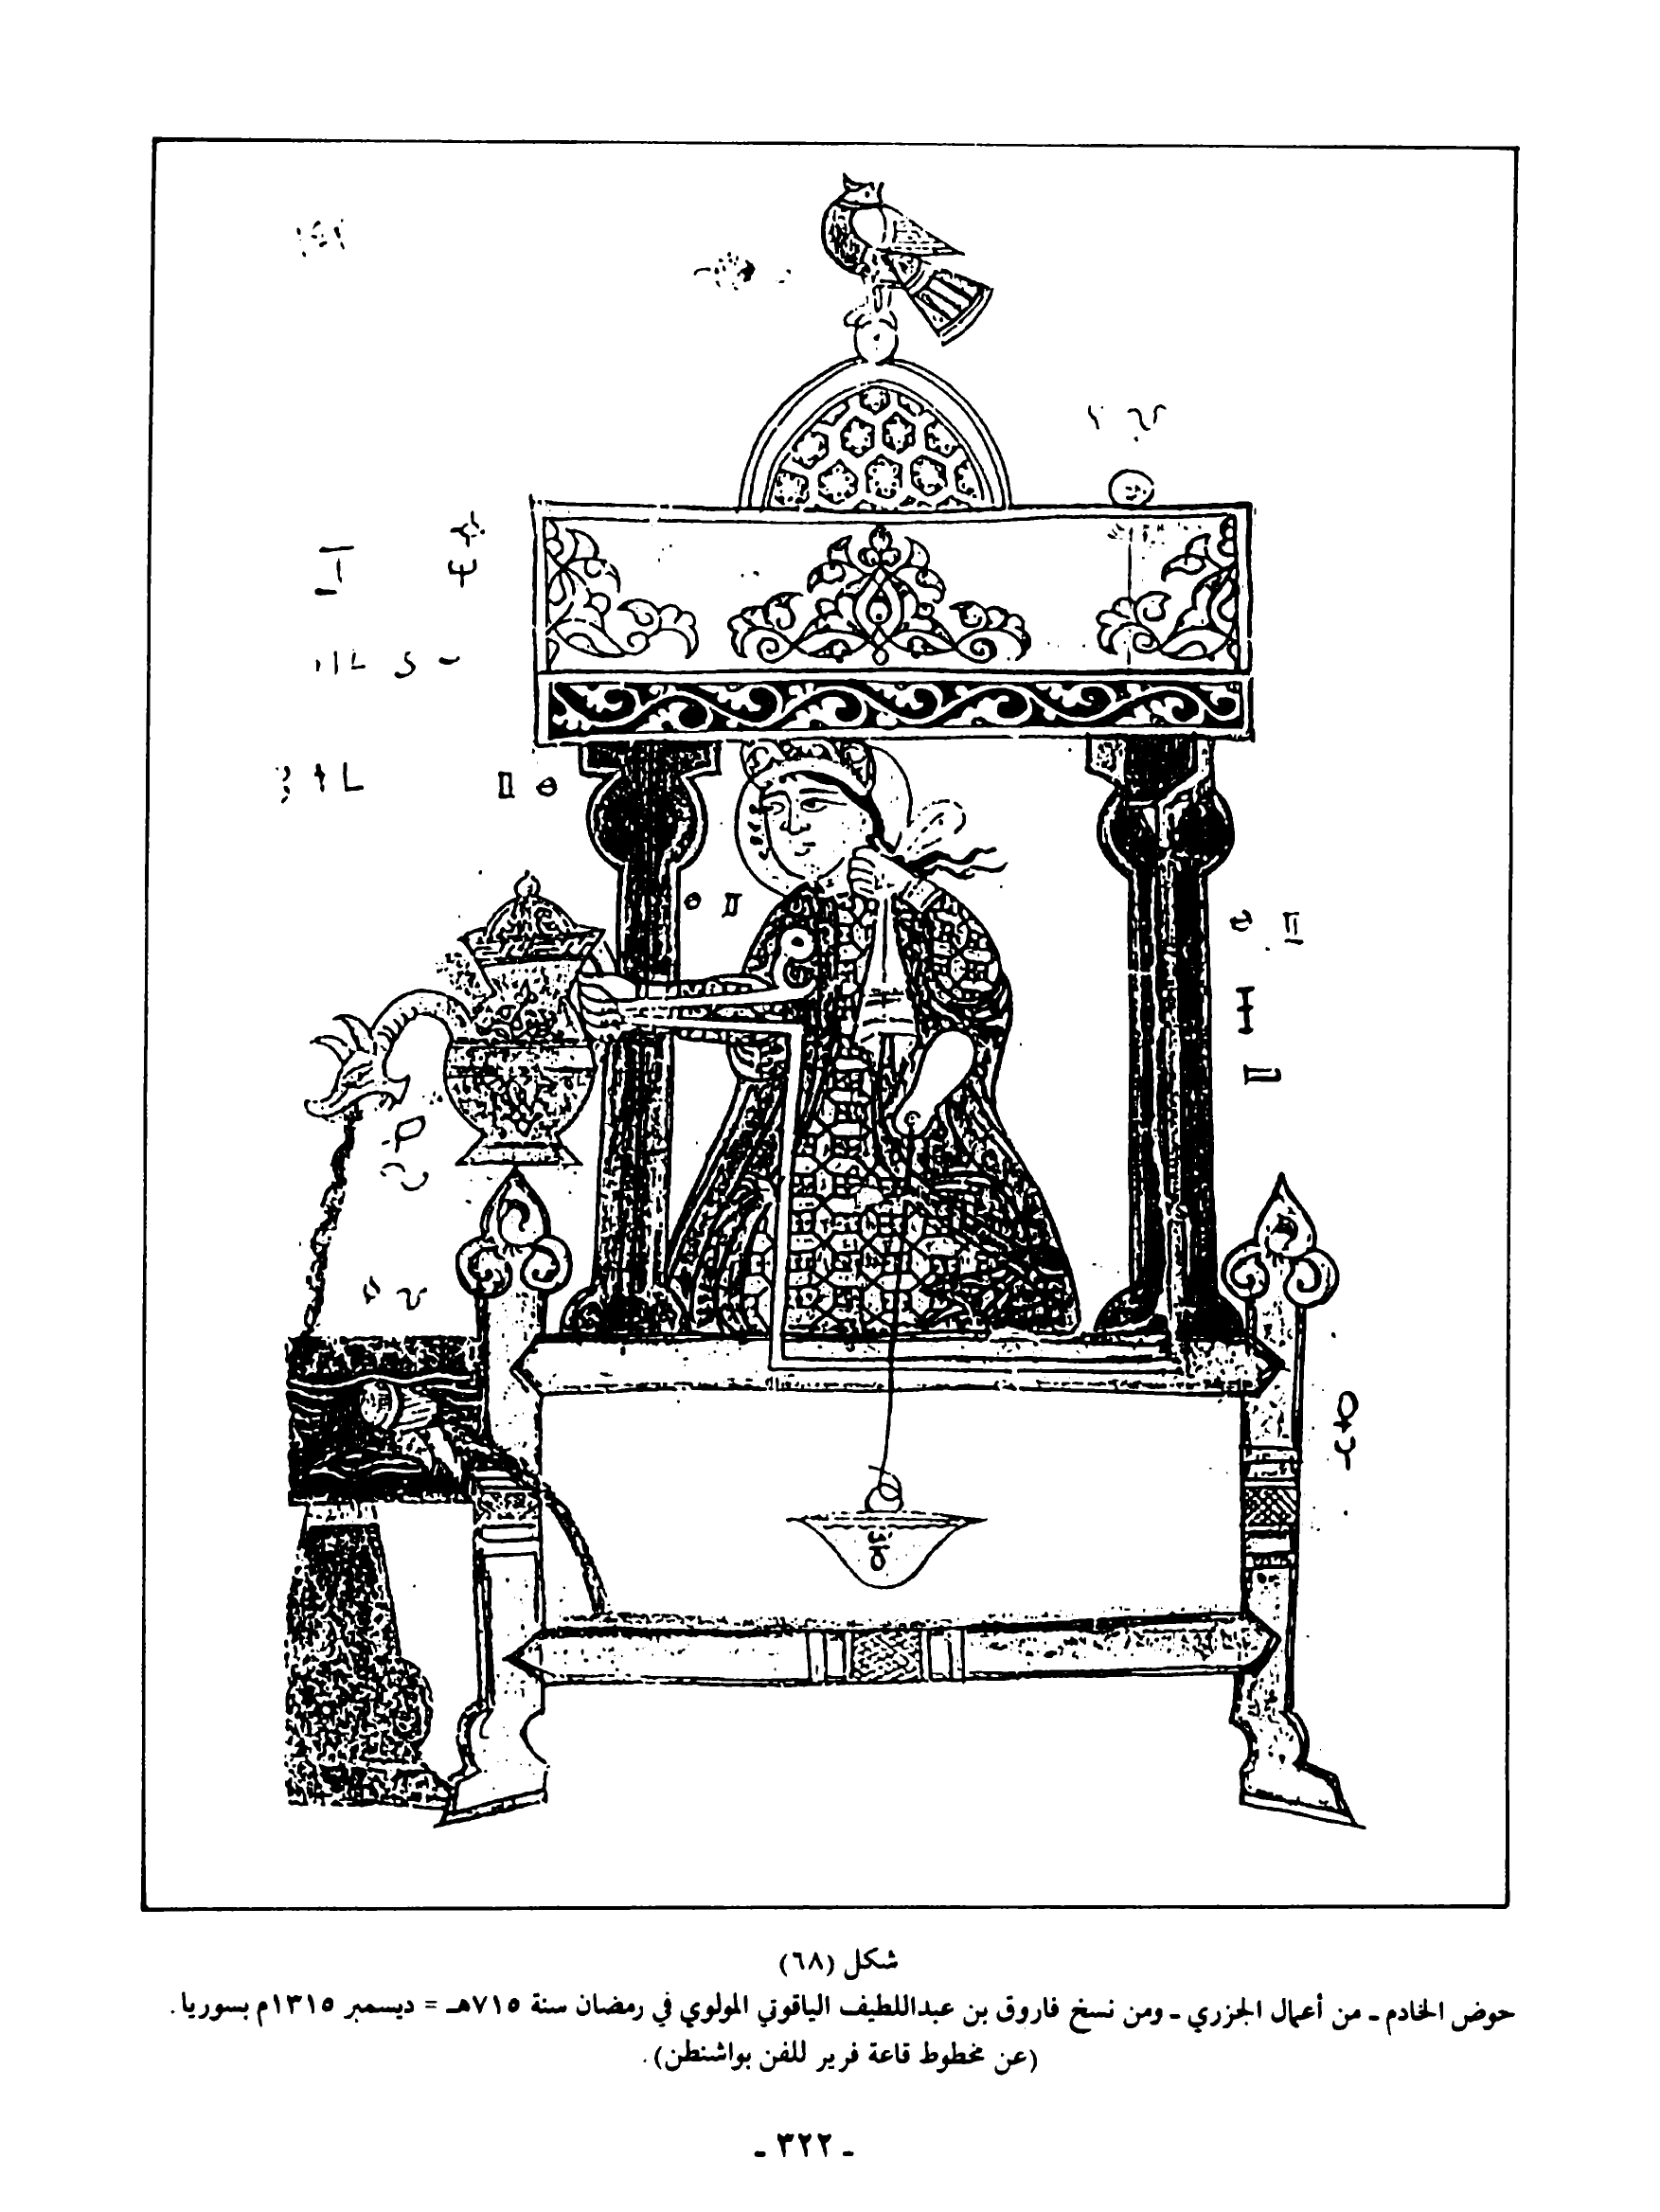 شكل (٦٨)
حوض الخادم ـ من أعمال الجزري ـ ومن نسخ فاروق بن عبداللطيف الياقوتي المولوي في رمضان سنة ٧١٥هـ = ديسمبر ١٣١٥م بسوريا.
(عن مخطوط قاعة فرير للفن بواشنطن).
ـ ٣٢٢ ـ